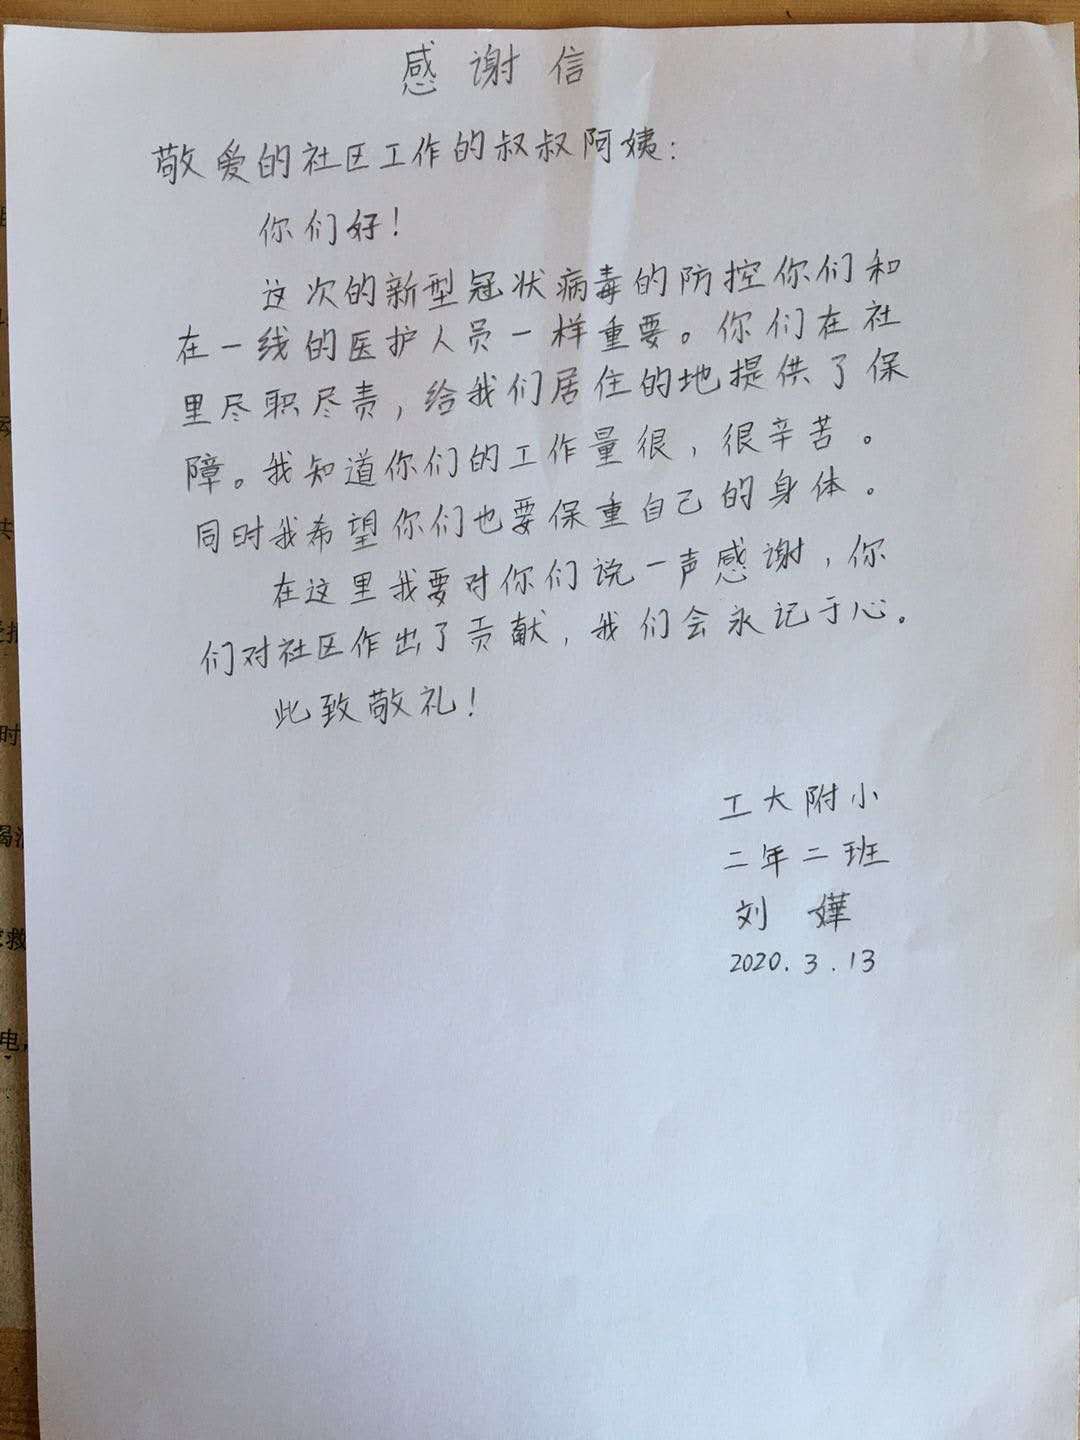 感谢信
敬爱的社区工作的叔叔阿姨：
你们好！
这次的新型冠状病毒的防控你们和
在一线的医护人员一样重要。你们在社
里尽职尽责，给我们居住的地提供了保
障。我知道你们的工作量很，很辛苦。
同时我希望你们也要保重自己的身体。
在这里我要对你们说一声感谢，你
们对社区作出了贡献，我们会永记于心。
此致敬礼！
工大附小
二年二班
刘 嬅
2020.3.13
共
时
救
电，